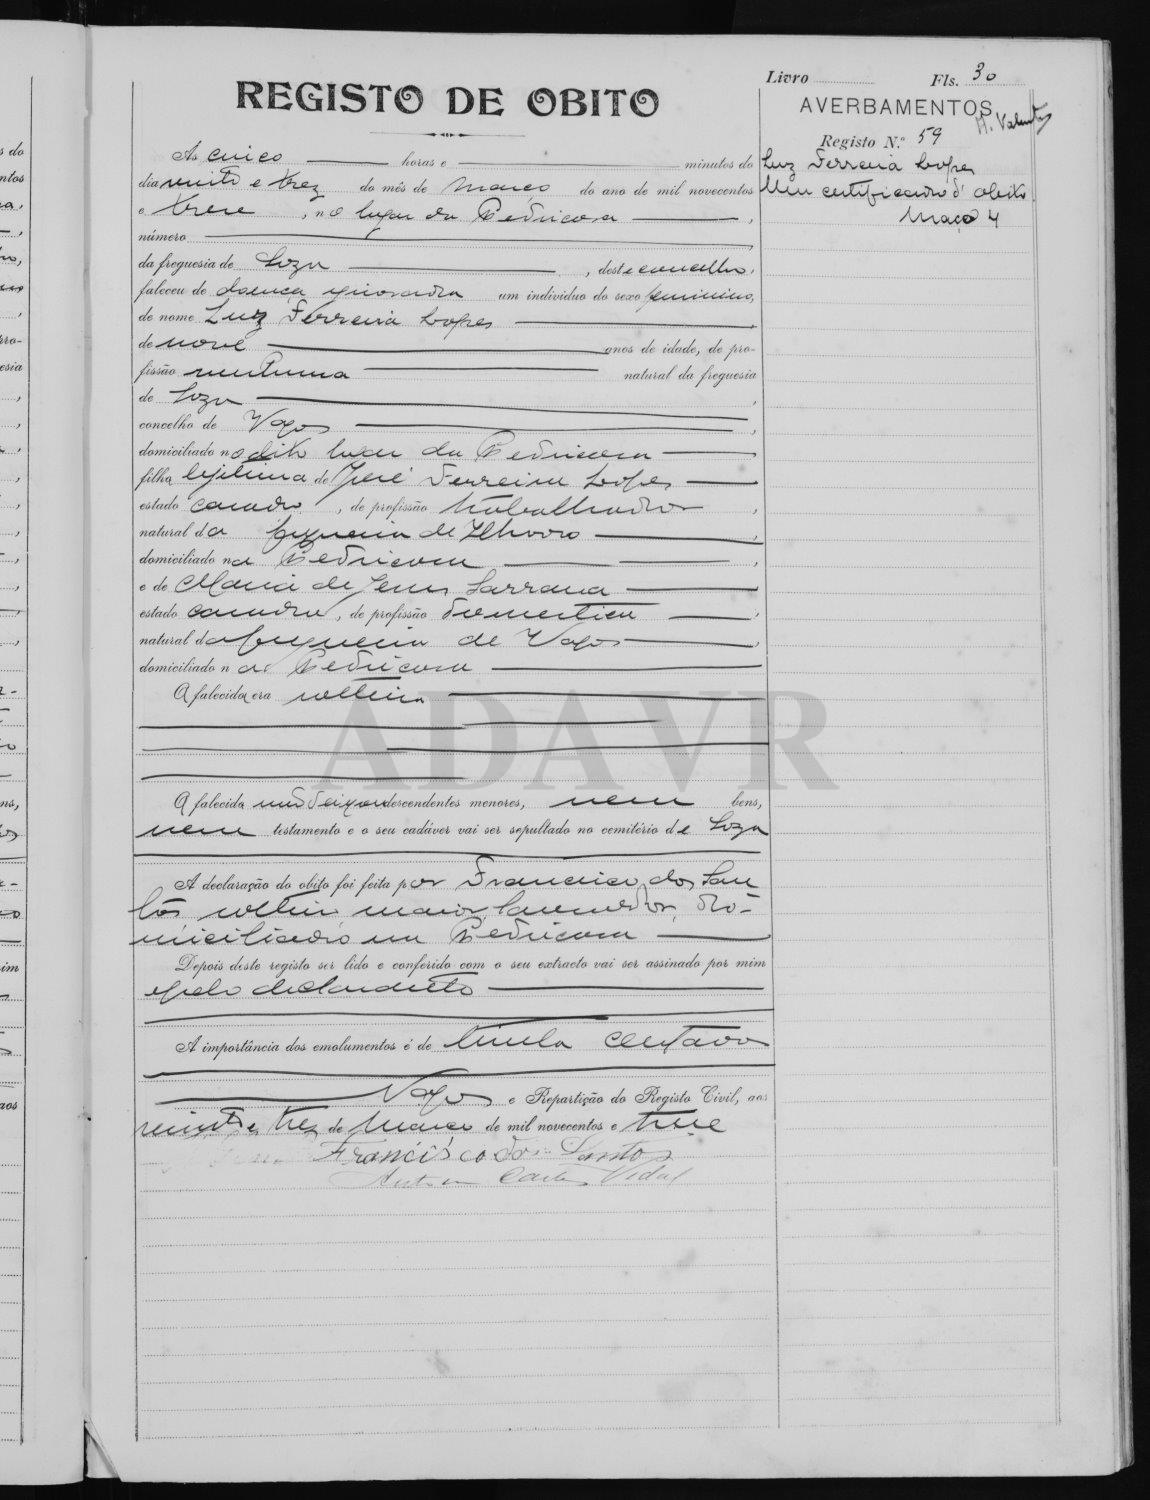 Livro Fls. 30
REGISTO DE OBITO
AVERBAMENTOS
Registo N.º 59
Luz Ferreira Lopes
Um certificado d' obito
Maço 4
Às cinco horas e minutos do
dia vinte e trez do mês de Março do ano de mil novecentos
e treze, no lugar da Pedricosa,
número
da freguesia de Soza, deste concelho,
faleceu de doença ignorada um individuo do sexo feminino,
de nome Luz Ferreira Lopes
de nove anos de idade, de pro-
fissão nenhuma natural da freguesia
de Soza,
concelho de Vagos,
domiciliado no dito lugar da Pedricosa
filha lejitima de José Ferreira Lopes
estado casado, de profissão trabalhador,
natural da freguesia de Ilhavo
domiciliado na Pedricosa,
e de Maria de Jesus Sarrana
estado casada, de profissão domestica,
natural da freguesia de Vagos,
domiciliado na Pedricosa
A falecida era solteira
A falecida não deixou descendentes menores, nem bens,
nem testamento e o seu cadáver vai ser sepultado no cemitério de Soza
A declaração do obito foi feita por Francisco dos San
tos solteiro maior lavrador, do-
miciliado na Pedricosa
Depois deste registo ser lido e conferido com o seu extracto vai ser assinado por mim
e pelo declarante
A importância dos emolumentos é de trinta centavos
Vagos e Repartição do Registo Civil, aos
vinte e trez de Março de mil novecentos e treze
Francisco dos Santos
Carlos Vidal
ADAVR